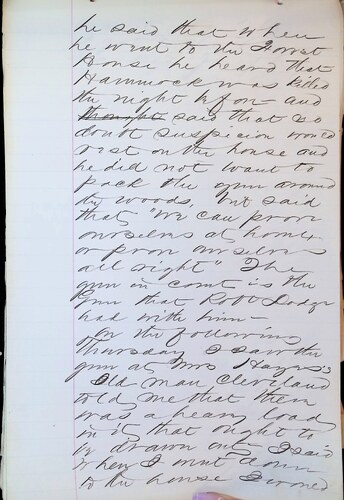 he said that when
he went to the Forrest
House he heard that
Hammock was killed
the night before - and
thought said that so
doubt suspicion would
rest on the house and
he did not want to
pack the gun around
the woods, but said
that, "we can prove
ourselves at home,
or prove ourselves
all right" The
gun in court is the
gun that Robt Dodge
had with him -
On the following
Thursday I saw the
gun at Mrs Hayes's
Old man Cleveland
told me that there
was a heavy load
in it that ought to
be drawn out, I said
when I went down
to the house I would